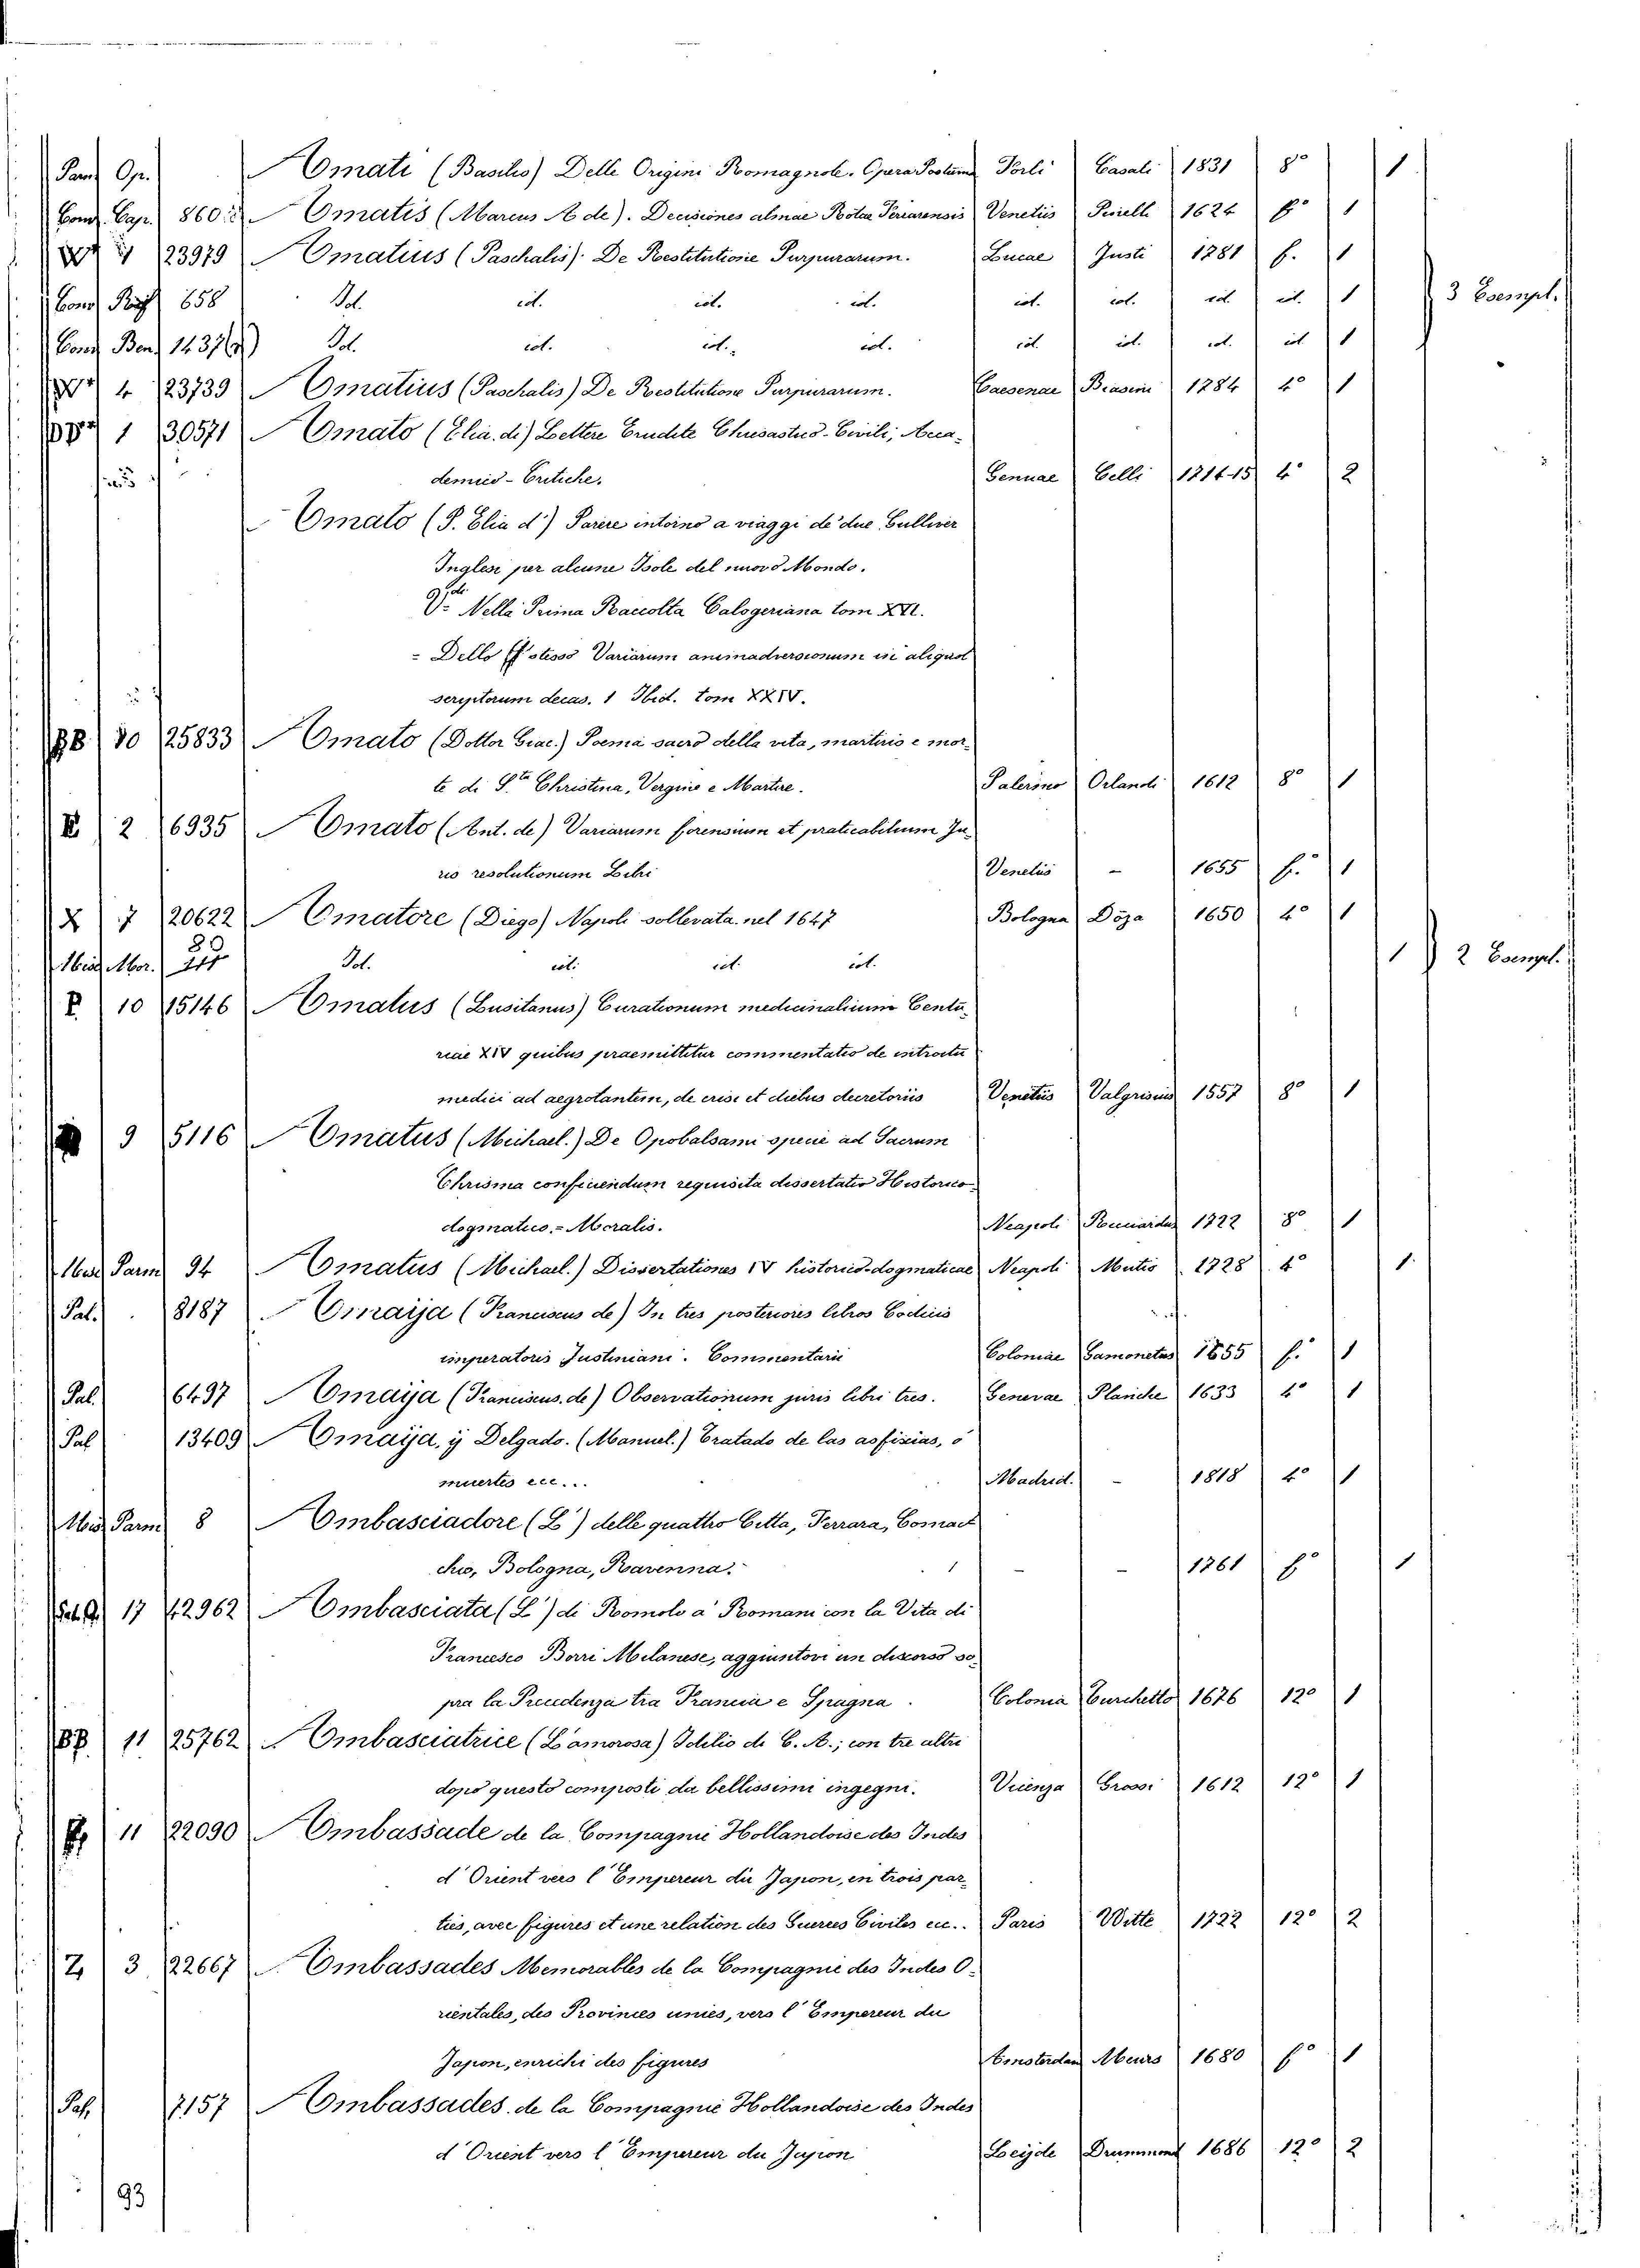 Amati (Basilio) Delle Origini Romagnole. Opera Postuma Forlì Casali 1831 8º 1
Cap. 860 Amatis (Marcus A de). Decisiones almae Rotae Venetiis 1624 fº 1
23979 Amatius (Paschalis). De Restitutione Purpurarum. Lucae Justi 1781 f. 1
658 Id. id. id. id. id. id. id. id. 1 3 Esempl.
Ben. 1437 Id. id. id. id. id. id. id. id. 1
4 23739 Amatius (Paschalis) De Restitutione Purpurarum. Caesenae Biasini 1784 4º 1
1 30571 Amato (Elia. di) Lettere Erudite Civili, Acca-
demico-Critiche. Genuae Celli 1714-15 4º 2
Amato (P. Elia d') Parere intorno a viaggi de' due Gulliver
Inglesi per alcune Isole del nuovo Mondo.
Nella Prima Raccolta Calogeriana tom XVI.
= Dello stesso Variarum animadversionum in aliquot
scriptorum decas. 1 Ibid. tom XXIV.
10 25833 Amato (Dottor Giac.) Poema sacro della vita, martirio e mor-
te di S.ta Christina, Vergine e Martire. Palermo Orlandi 1612 8º 1
2 6935 Amato (Ant. de) Variarum forensium et praticabilium Ju-
ris resolutionum Libri Venetiis - 1655 f. 1
X 7 20622 Amatore (Diego) Napoli sollevata nel 1647 Bologna Doza 1650 4º 1
Mor. 80 Id. id. id. id. 1 2 Esempl.
10 15146 Amatus (Lusitanus) Curationum medicinalium Centu-
riae XIV quibus praemittitur commentatio de introitu
medici ad aegrotantem, de crisi et diebus decretoriis Venetiis Valgrisius 1557 8º 1
9 5116 Amatus (Michael.) De Opobalsami specie ad Sacrum
Chrisma conficiendum requisita dissertatio Historico-
dogmatico-Moralis. Neapoli 1722 8º 1
Parm 94 Amatus (Michael.) Dissertationes IV historico-dogmaticae Neapoli Mutis 1728 4º 1
Pal. 8187 Amaija (Franciscus de) In tres posteriores libros Codicis
imperatoris Justiniani. Commentarii Coloniae Gamonetus 1655 f. 1
Pal. 6497 Amaija (Franciscus. de) Observationum juris libri tres. Genevae Planche 1633 4º 1
Pal 13409 Amaija, ij Delgado. (Manuel.) Tratado de las asfixias, o
muertes ecc... Madrid. - 1818 4º 1
Parm 8 Ambasciadore (L') delle quattro Citta, Ferrara, Comac
chio, Bologna, Ravenna. - - 1761 fº 1
17 42962 Ambasciata (L') di Romolo a' Romani con la Vita di
Francesco Borri Milanese, aggiuntovi un discorso so-
pra la Precedenza tra Francia e Spagna. Colonia Turchetto 1676 12º 1
11 25762 Ambasciatrice (L'amorosa) Idilio di C. A.; con tre altri
dopo questo composti da bellissimi ingegni. Vicenza Grossi 1612 12º 1
11 22090 Ambassade de la Compagnie Hollandoise des Indes
d'Orient vers l'Empereur du Japon, en trois par-
ties, avec figures et une relation des Guerres Civiles ec.. Paris Witte 1722 12º 2
Z 3 22667 Ambassades Memorables de la Compagnie des Indes O-
rientales, des Provinces unies, vers l'Empereur du
Japon, enrichi des figures Amsterdam Meurs 1680 fº 1
Pal. 7157 Ambassades de la Compagnie Hollandoise des Indes
d'Orient vers l'Empereur du Japon Leijde Drummond 1686 12º 2
93